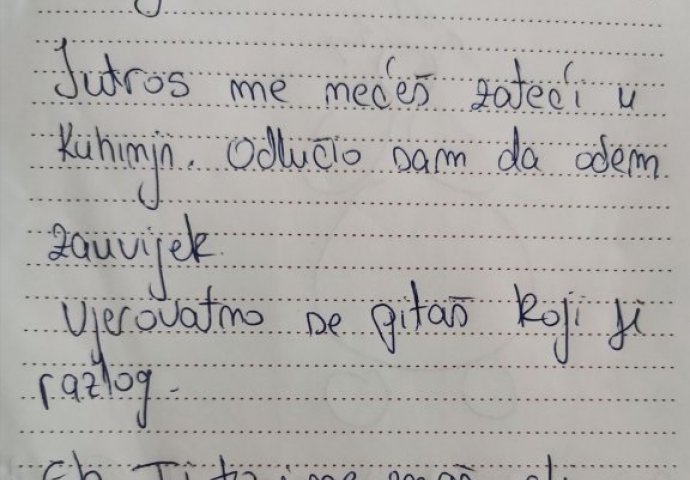 Jutros me nećeš zateći u
kuhinji. Odlučio sam da odem
zauvijek.
Vjerovatno se pitaš koji ji
razlog.
Eh Ti